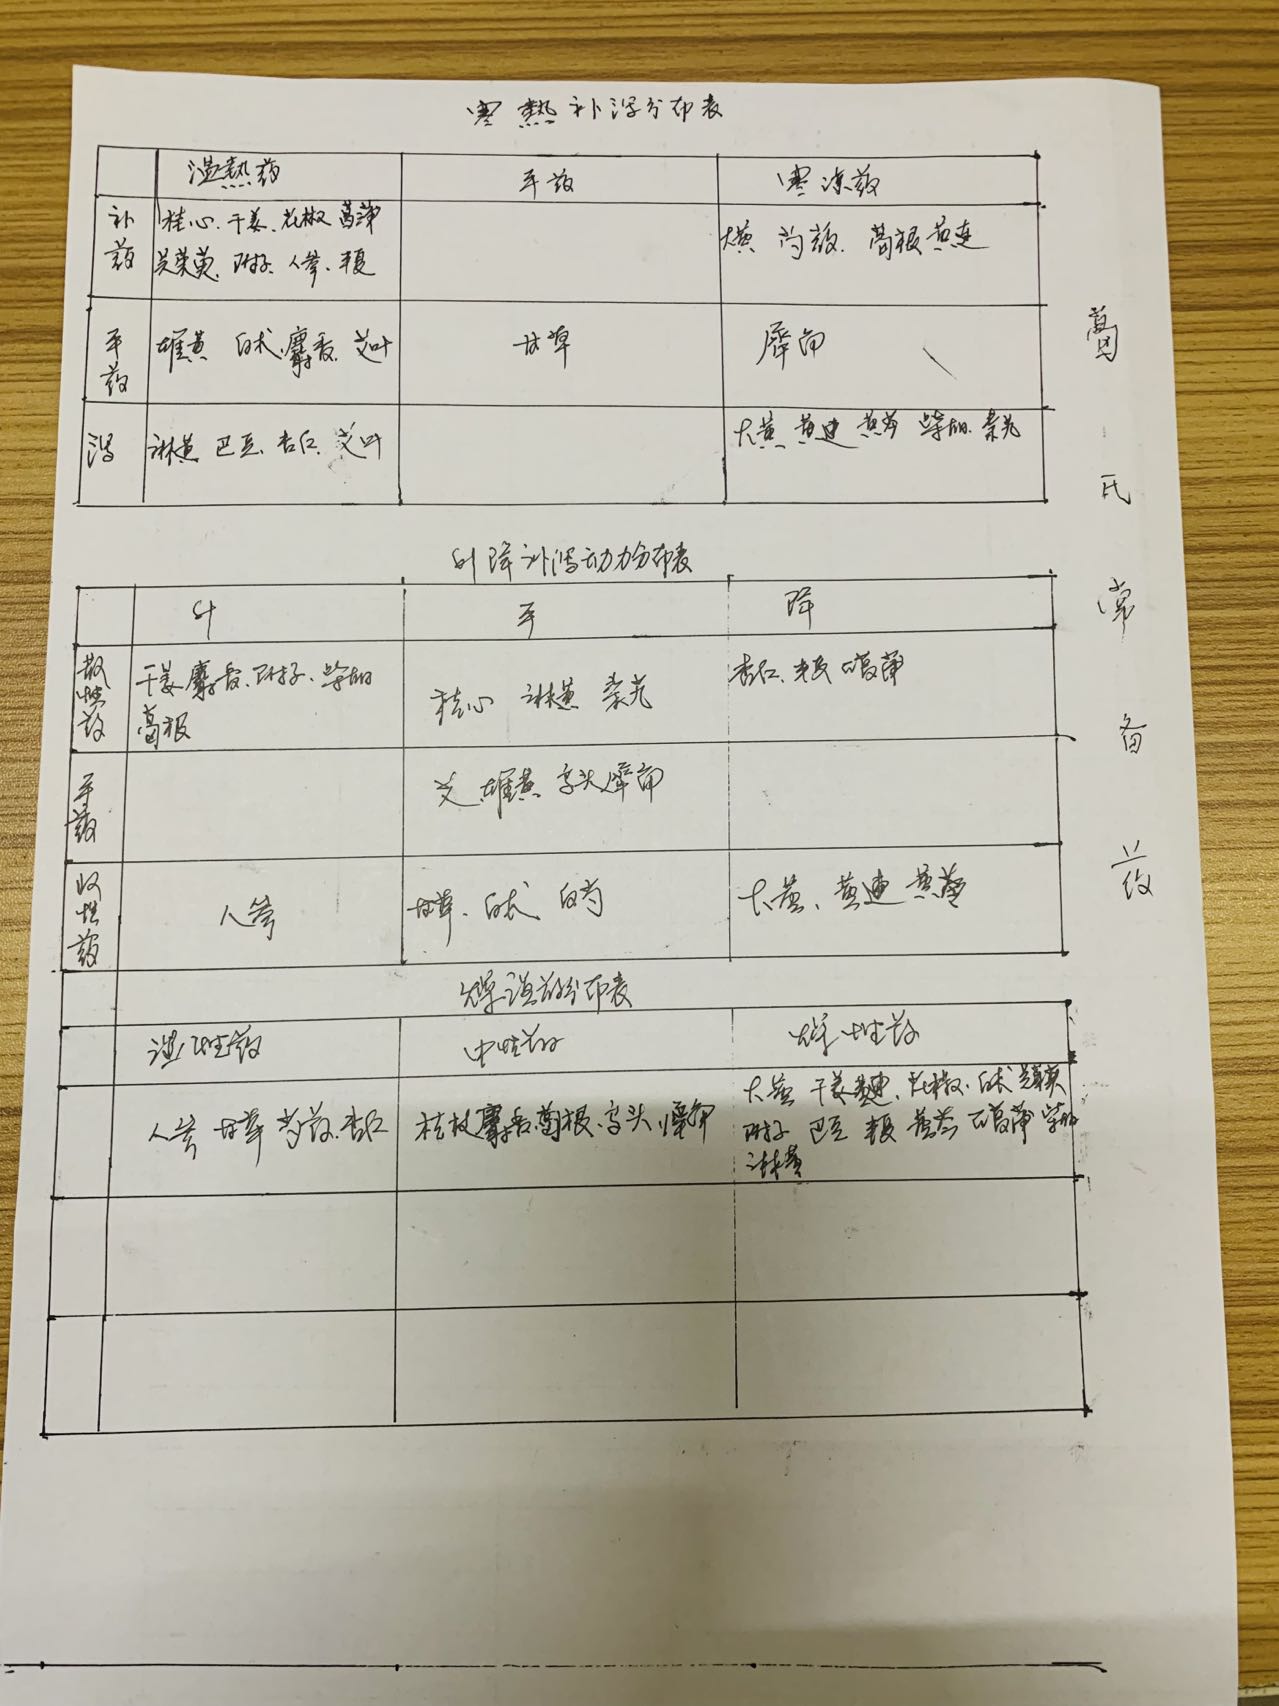 寒熱补泻分布表
温熱药
平药
寒凉药
补药
桂心、干姜、花椒 菖蒲
吴茱萸、附子、人参、半夏
大黄 芍药、葛根 黄连
平药
雄黄 白术、麝香、艾叶
甘草
犀角
泻
麻黄 巴豆、杏仁、艾叶
大黄 黄连 黄芩 柴胡、秦艽
升降补泻动力分布表
升
平
降
散性药
干姜 麝香、附子、柴胡
葛根
桂心 麻黄 秦艽
杏仁、半夏 石菖蒲
平药
艾 雄黄 乌头 犀角
收性药
人参
甘草、白术 白芍
大黄、黄连 黄芩
燥湿药分布表
湿性药
中性药
燥性药
人参 甘草 芍药、杏仁
桂枝 麝香、葛根、乌头、犀角
大黄 干姜 黄连、花椒、白术 吴茱萸
附子 巴豆 半夏 黄芩 石菖蒲 柴胡
麻黄
葛氏常备药